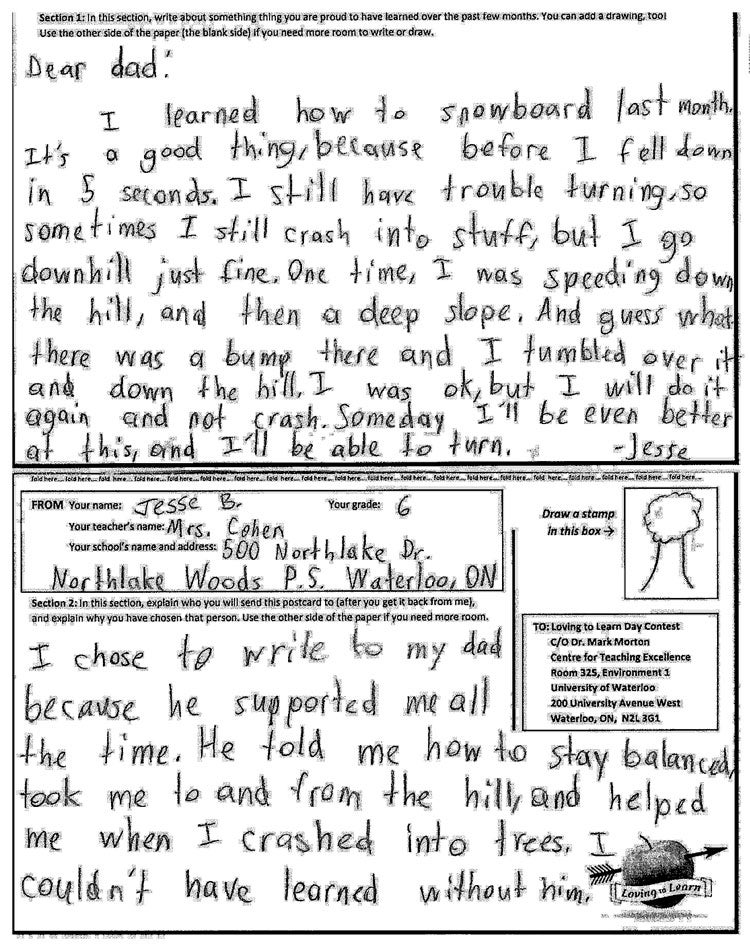 Section 1: In this section, write about something thing you are proud to have learned over the past few months. You can add a drawing, too!
Use the other side of the paper (the blank side) if you need more room to write or draw.
Dear dad:
I learned how to snowboard last month.
It's a good thing, because before I fell down
in 5 seconds. I still have trouble turning, so
sometimes I still crash into stuff, but I go
downhill just fine. One time, I was speeding down
the hill, and then a deep slope. And guess what
there was a bump there and I tumbled over it
and down the hill. I was ok, but I will do it
again and not crash. Someday I'll be even better
at this, and I'll be able to turn. -Jesse
fold here... fold here... fold here... fold here... fold here... fold here... fold here... fold here... fold here... fold here... fold here... fold here... fold here... fold here... fold here... fold here... fold here... fold here...
FROM Your name: Jesse B. Your grade: 6
Your teacher's name: Mrs. Cohen
Your school's name and address: 500 Northlake Dr.
Northlake Woods P.S. Waterloo, ON
Draw a stamp
in this box →
Section 2: In this section, explain who you will send this postcard to (after you get it back from me),
and explain why you have chosen that person. Use the other side of the paper if you need more room.
TO: Loving to Learn Day Contest
C/O Dr. Mark Morton
Centre for Teaching Excellence
Room 325, Environment 1
University of Waterloo
200 University Avenue West
Waterloo, ON, N2L 3G1
I chose to write to my dad
because he supported me all
the time. He told me how to stay balanced,
took me to and from the hill, and helped
me when I crashed into trees. I
couldn't have learned without him.
Loving to Learn